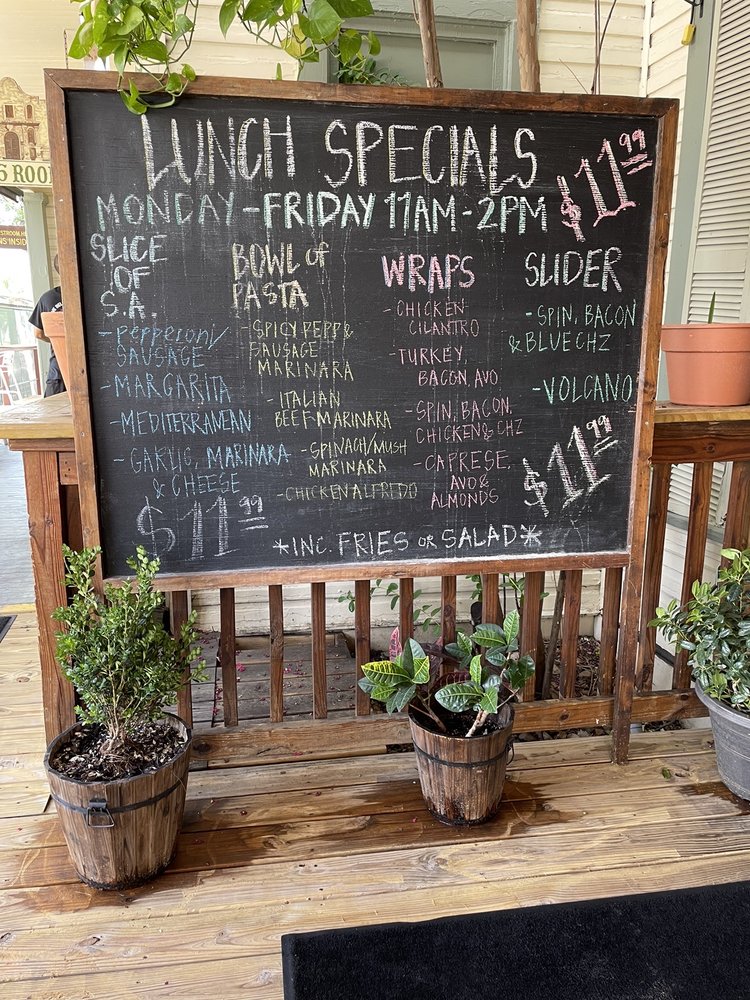 LUNCH SPECIALS
$11.99
MONDAY-FRIDAY 11AM-2PM
SLICE
OF
S.A.
-pepperoni/
SAUSAGE
-MARGARITA
-MEDITERRANEAN
-GARLIC, MARINARA
& CHEESE
$11.99
BOWL of
PASTA
-SPICY PEPP &
SAUSAGE
MARINARA
-ITALIAN
BEEF MARINARA
-SPINACH/MUSH
MARINARA
-CHICKEN ALFREDO
WRAPS
-CHICKEN
CILANTRO
-TURKEY,
BACON, AVO
-SPIN, BACON,
CHICKEN & CHZ
-CAPRESE,
AVO &
ALMONDS
SLIDER
-SPIN, BACON
& BLUE CHZ
-VOLCANO
$11.99
*INC. FRIES OR SALAD*